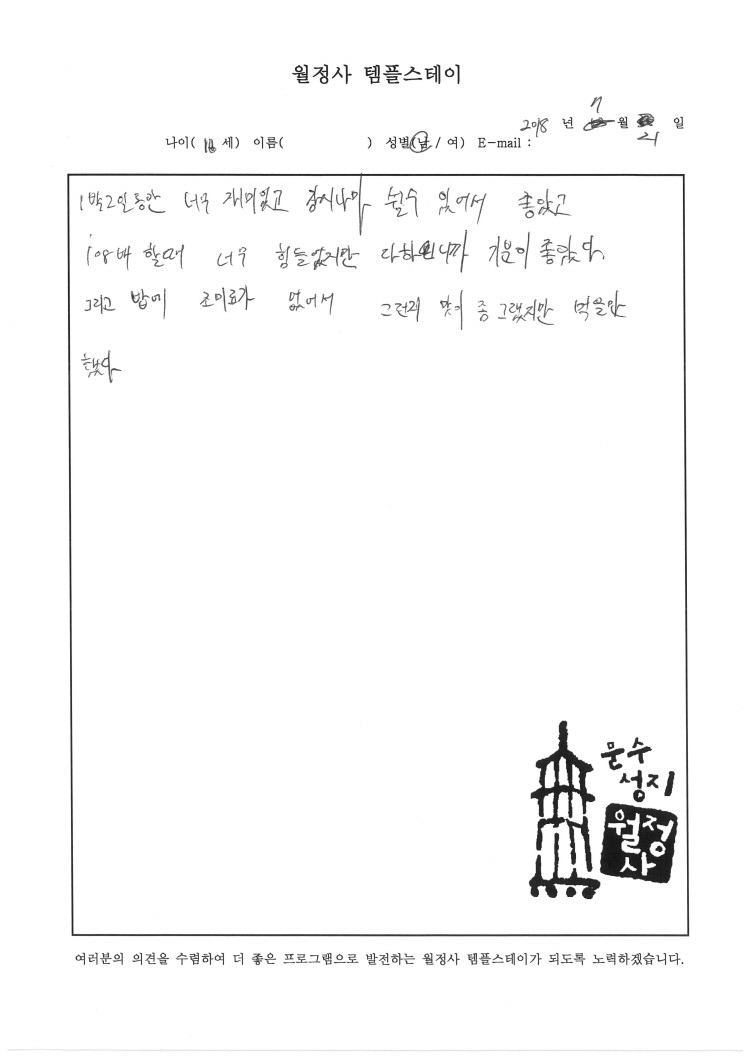 월정사 템플스테이
나이( 세) 이름( ) 성별(남 / 여) E-mail : 2018 년 7 월 21 일
1박2일동안 너무 재미있고 잠시나마 쉴수 있어서 좋았고
108배 할때 너무 힘들었지만 다하니까 기분이 좋았다.
그리고 밥에 조미료가 없어서 그런지 맛이 좀 그랬지만 먹을만
했다
문수
성지
월정
사
여러분의 의견을 수렴하여 더 좋은 프로그램으로 발전하는 월정사 템플스테이가 되도록 노력하겠습니다.